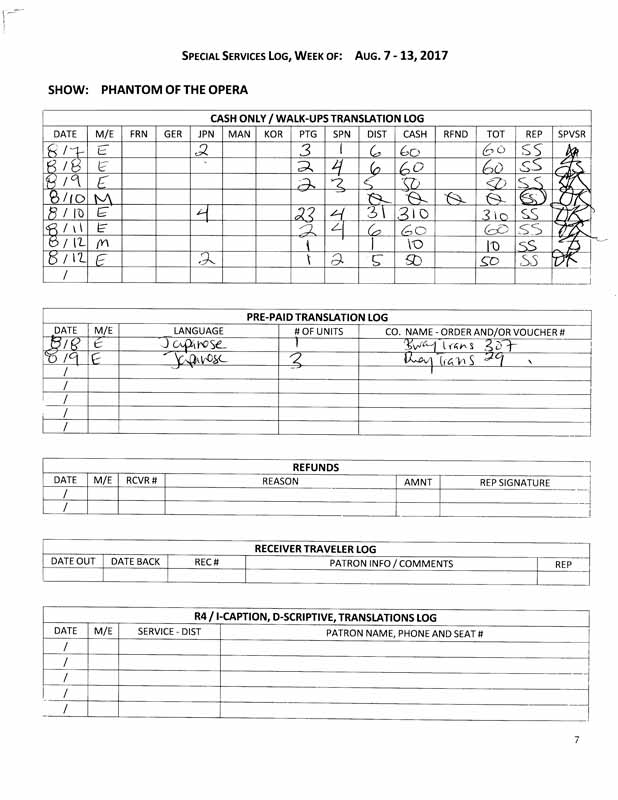 SPECIAL SERVICES LOG, WEEK OF: AUG. 7 - 13, 2017
SHOW: PHANTOM OF THE OPERA
CASH ONLY / WALK-UPS TRANSLATION LOG
DATE M/E FRN GER JPN MAN KOR PTG SPN DIST CASH RFND TOT REP SPVSR
8/7 E 2 3 1 6 60 60 SS
8/8 E 2 4 6 60 60 SS
8/9 E 2 3 5 50 50 SS
8/10 M 0 0 0 0 SS
8/10 E 4 23 4 31 310 310 SS
8/11 E 2 4 6 60 60 SS
8/12 M 1 1 10 10 SS
8/12 E 2 1 2 5 50 50 SS
/
PRE-PAID TRANSLATION LOG
DATE M/E LANGUAGE # OF UNITS CO. NAME - ORDER AND/OR VOUCHER #
8/8 E Japinese 1 Bway Trans 307
8/9 E Japinese 3 Bway Trans 29
/
/
/
/
/
REFUNDS
DATE M/E RCVR # REASON AMNT REP SIGNATURE
/
/
RECEIVER TRAVELER LOG
DATE OUT DATE BACK REC # PATRON INFO / COMMENTS REP
R4 / I-CAPTION, D-SCRIPTIVE, TRANSLATIONS LOG
DATE M/E SERVICE - DIST PATRON NAME, PHONE AND SEAT #
/
/
/
/
/
7